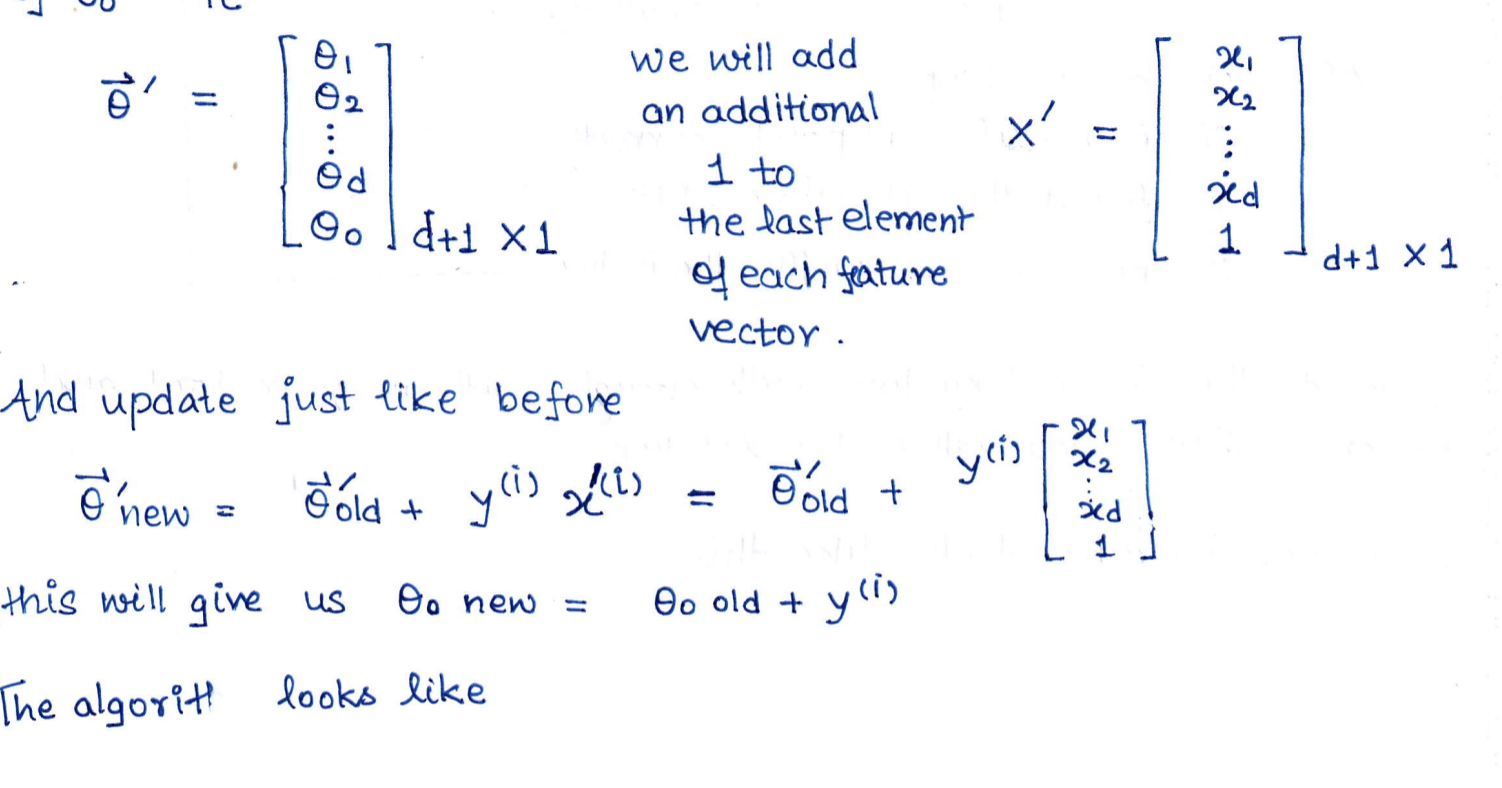 θ⃗′ = [ θ1 θ2 ⋮ θd θ0 ] d+1 × 1
we will add
an additional
1 to
the last element
of each feature
vector.
x′ = [ x1 x2 ⋮ xd 1 ] d+1 × 1
And update just like before
θ⃗′new = θ⃗′old + y(i) x′(i) = θ⃗′old + y(i) [ x1 x2 ⋮ xd 1 ]
this will give us θ0 new = θ0 old + y(i)
The algoritH looks like